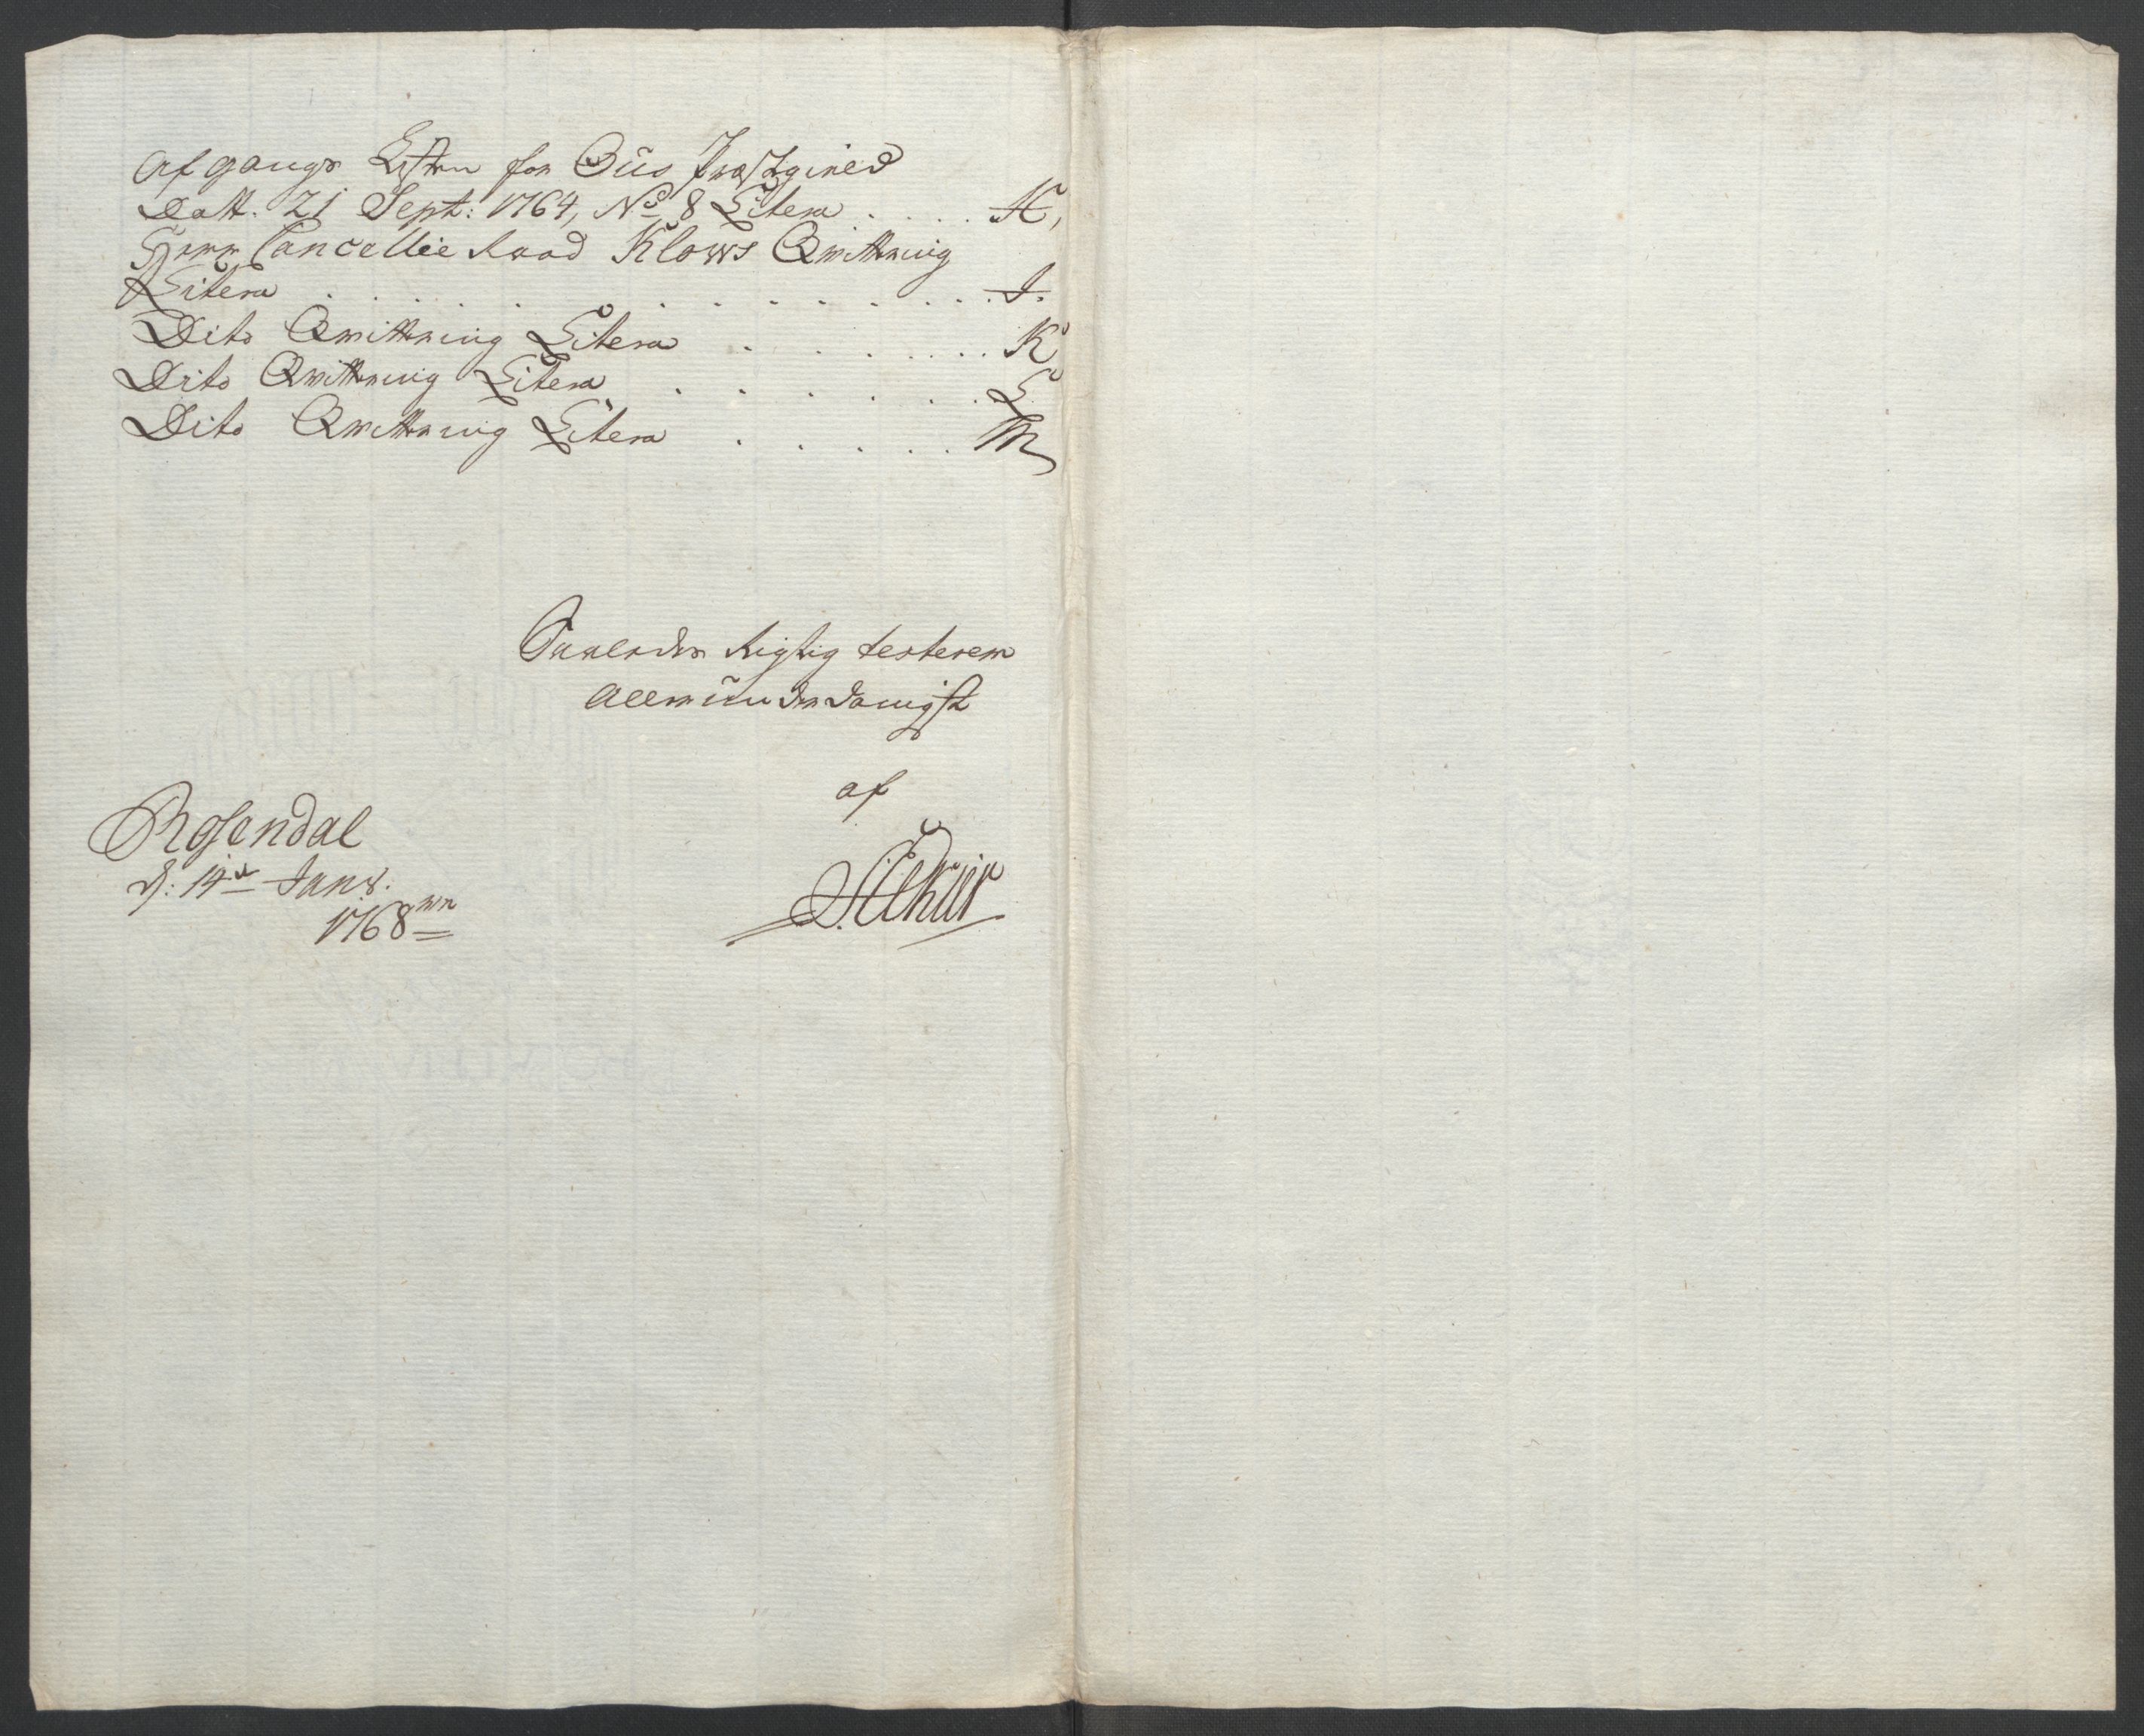 Afgangs Listen for Ous Præstegield
Datt. 21 Sept: 1764, No 8 Litera . . . . H,
Herr Cancellie Raad Klows Qvittering
Litera . . . . . . . . . . . . I.
Dito Qvittering Litera . . . . . . K
Dito Qvittering Litera . . . . . . L
Dito Qvittering Litera . . . . . M
Saaledes Rigtig testerer
allerunderdanigst
af
Rosendal
d: 14de Janr.
1768